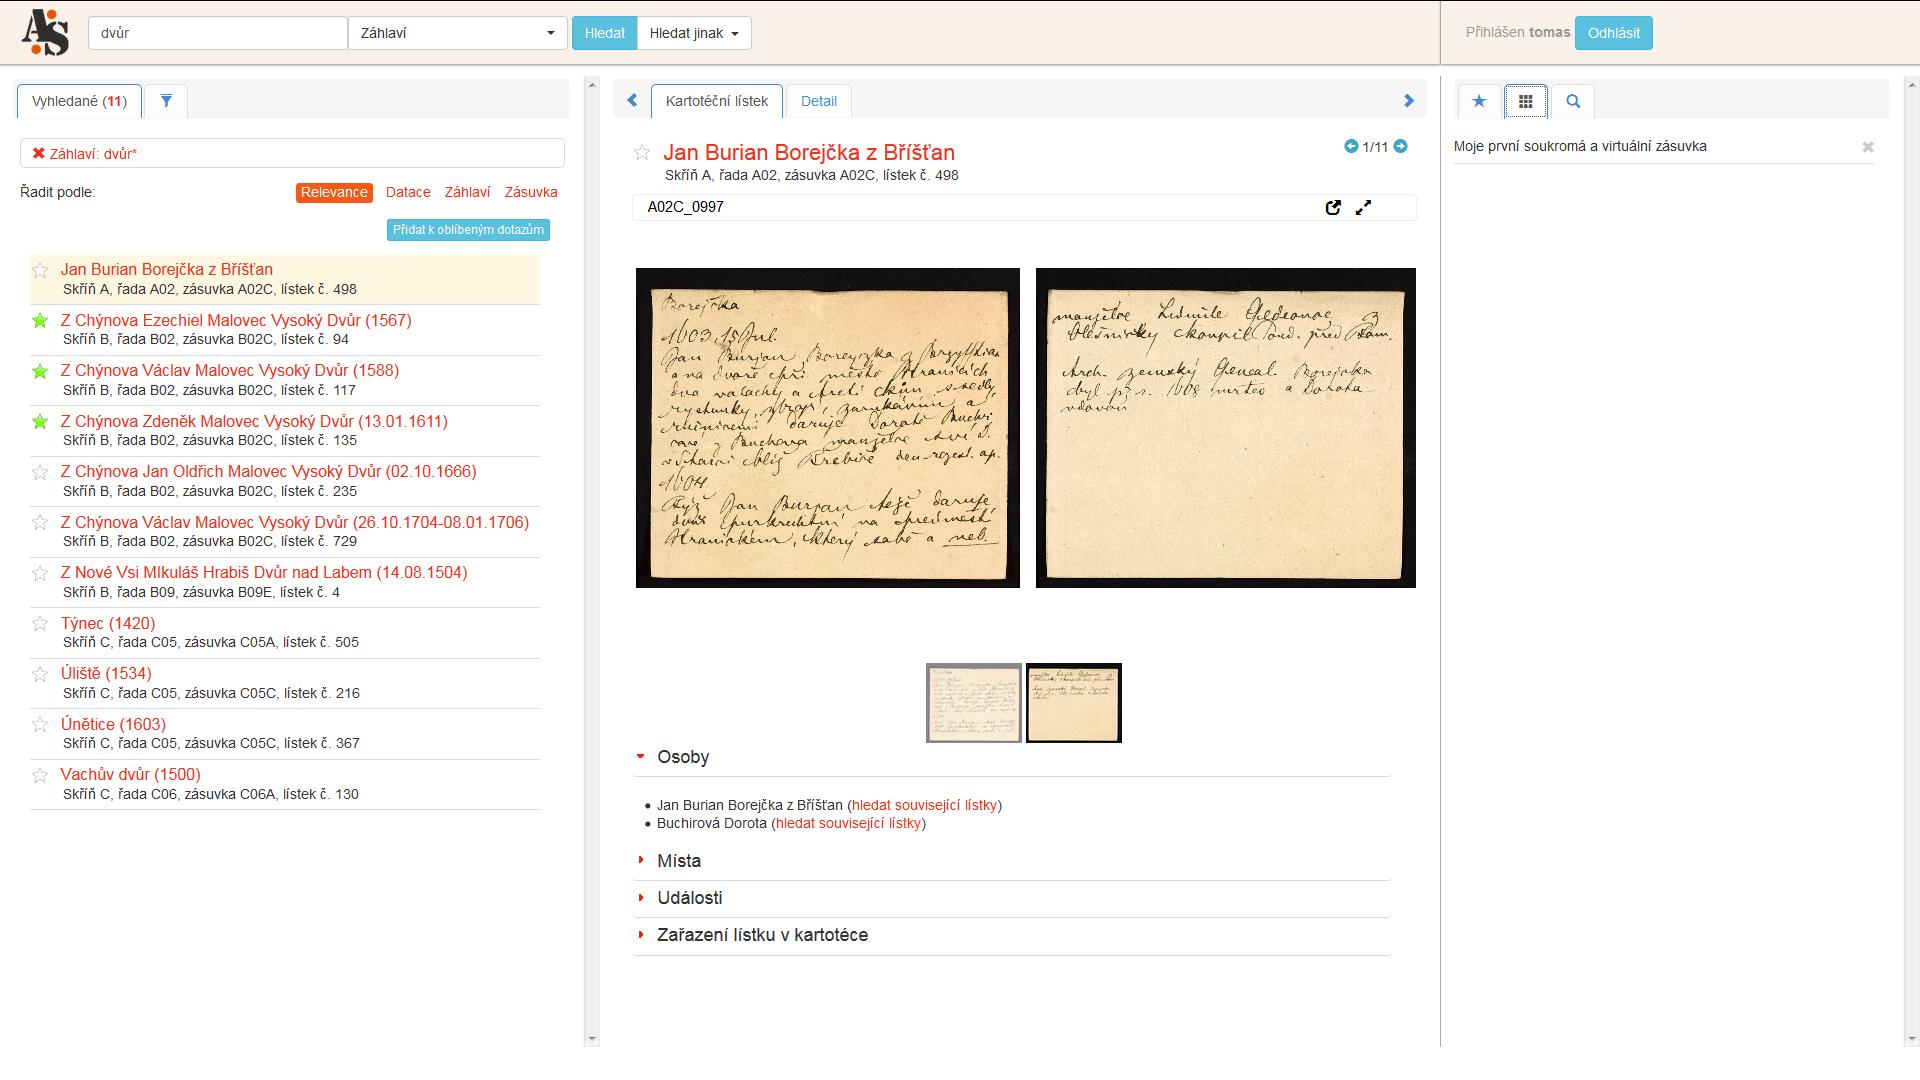 AS
dvůr
Záhlaví
Hledat
Hledat jinak
Přihlášen tomas
Odhlásit
Vyhledané (11)
✖ Záhlaví: dvůr*
Řadit podle:
Relevance
Datace
Záhlaví
Zásuvka
Přidat k oblíbeným dotazům
Jan Burian Borejčka z Bříšťan
Skříň A, řada A02, zásuvka A02C, lístek č. 498
Z Chýnova Ezechiel Malovec Vysoký Dvůr (1567)
Skříň B, řada B02, zásuvka B02C, lístek č. 94
Z Chýnova Václav Malovec Vysoký Dvůr (1588)
Skříň B, řada B02, zásuvka B02C, lístek č. 117
Z Chýnova Zdeněk Malovec Vysoký Dvůr (13.01.1611)
Skříň B, řada B02, zásuvka B02C, lístek č. 135
Z Chýnova Jan Oldřich Malovec Vysoký Dvůr (02.10.1666)
Skříň B, řada B02, zásuvka B02C, lístek č. 235
Z Chýnova Václav Malovec Vysoký Dvůr (26.10.1704-08.01.1706)
Skříň B, řada B02, zásuvka B02C, lístek č. 729
Z Nové Vsi MIkuláš Hrabiš Dvůr nad Labem (14.08.1504)
Skříň B, řada B09, zásuvka B09E, lístek č. 4
Týnec (1420)
Skříň C, řada C05, zásuvka C05A, lístek č. 505
Úliště (1534)
Skříň C, řada C05, zásuvka C05C, lístek č. 216
Únětice (1603)
Skříň C, řada C05, zásuvka C05C, lístek č. 367
Vachův dvůr (1500)
Skříň C, řada C06, zásuvka C06A, lístek č. 130
Kartotéční lístek
Detail
Jan Burian Borejčka z Bříšťan
1/11
Skříň A, řada A02, zásuvka A02C, lístek č. 498
A02C_0997
Borejčka
1603, 15 Jul.
Jan Burjan
na dvoře při městě Hranicích
dva valachy a
daruje Dorotě
manželce své
1604
Týž Jan Burjan též daruje
dvůr na předměstí
Hranickém, který sobě a neb.
manželce Lidmile
skoupil
Arch. zemský Geneal. Borejčka
byl již r. 1608 mrtev a Dorota
vdovou
Osoby
Jan Burian Borejčka z Bříšťan (hledat související lístky)
Buchirová Dorota (hledat související lístky)
Místa
Události
Zařazení lístku v kartotéce
Moje první soukromá a virtuální zásuvka